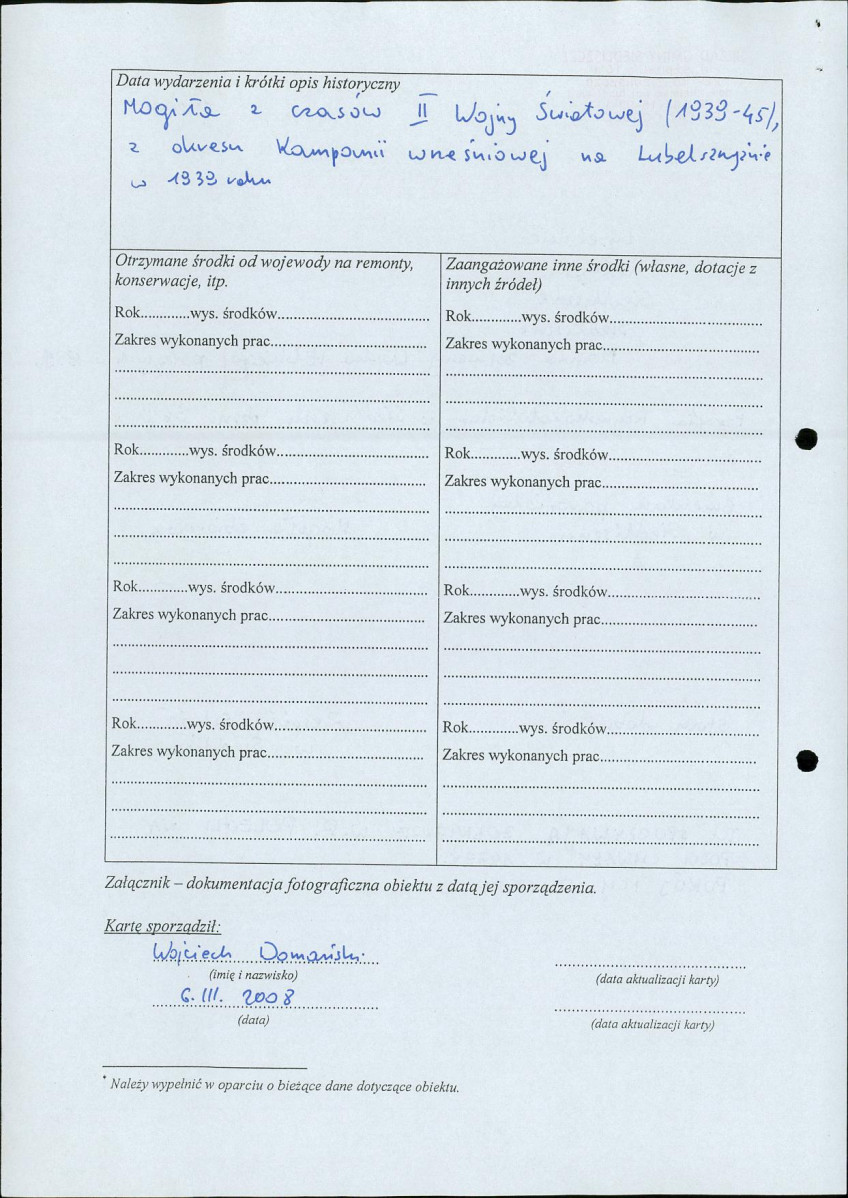 Data wydarzenia i krótki opis historyczny
Mogiła z czasów II Wojny Światowej (1939-45),
z okresu Kampanii wrześniowej na Lubelszczyźnie
w 1939 roku
Otrzymane środki od wojewody na remonty,
konserwacje, itp.
Rok............wys. środków......................................
Zakres wykonanych prac.......................................
Rok............wys. środków......................................
Zakres wykonanych prac.......................................
Rok............wys. środków......................................
Zakres wykonanych prac.......................................
Rok............wys. środków......................................
Zakres wykonanych prac.......................................
Zaangażowane inne środki (własne, dotacje z
innych źródeł)
Rok............wys. środków......................................
Zakres wykonanych prac.......................................
Rok............wys. środków......................................
Zakres wykonanych prac.......................................
Rok............wys. środków......................................
Zakres wykonanych prac.......................................
Rok............wys. środków......................................
Zakres wykonanych prac.......................................
Załącznik – dokumentacja fotograficzna obiektu z datą jej sporządzenia.
Kartę sporządził:
Wojciech Domański
(imię i nazwisko)
6. III. 2008
(data)
(data aktualizacji karty)
(data aktualizacji karty)
* Należy wypełnić w oparciu o bieżące dane dotyczące obiektu.